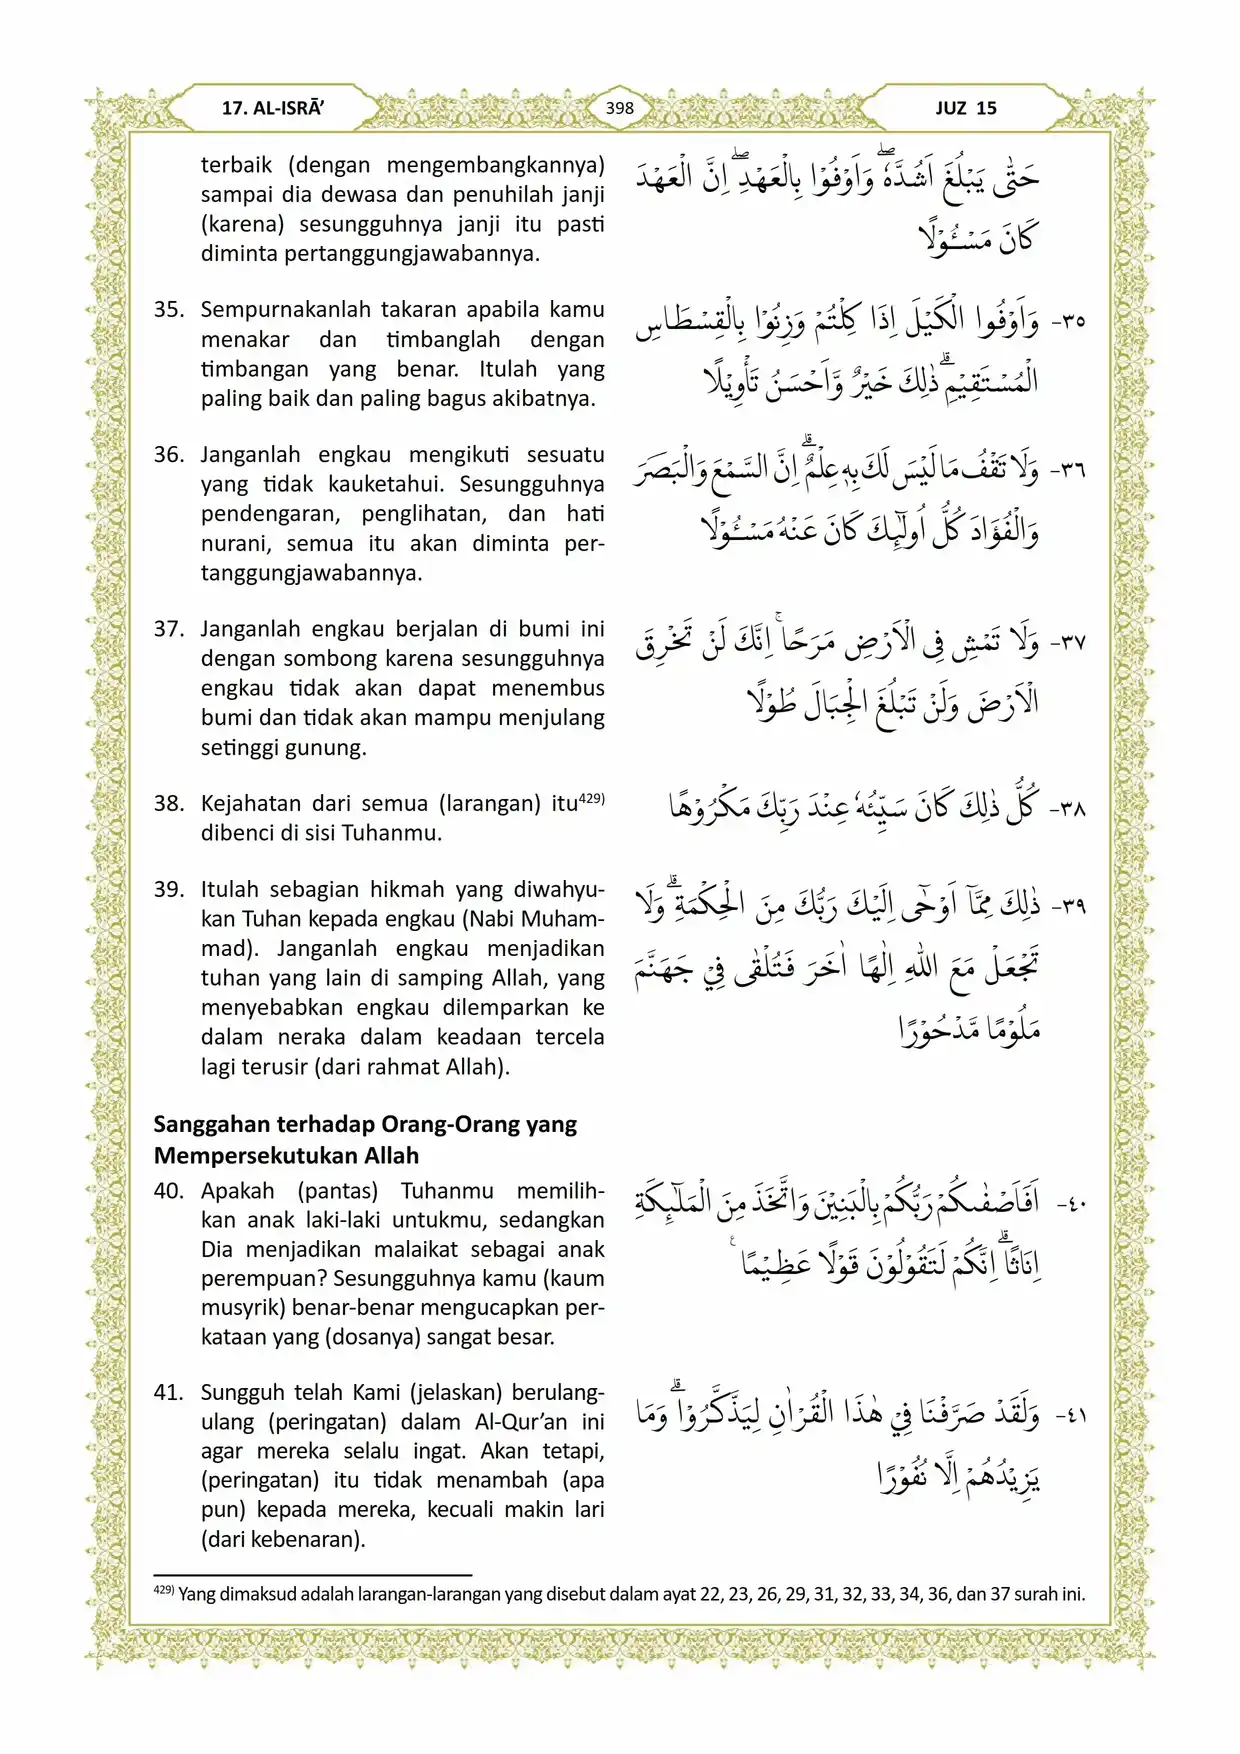 17. AL-ISRĀ’
398
JUZ 15
terbaik (dengan mengembangkannya)
sampai dia dewasa dan penuhilah janji
(karena) sesungguhnya janji itu pasti
diminta pertanggungjawabannya.
حَتّٰى يَبْلُغَ اَشُدَّهٗۖ وَاَوْفُوْا بِالْعَهْدِۖ اِنَّ الْعَهْدَ
كَانَ مَسْـُٔوْلًا
35. Sempurnakanlah takaran apabila kamu
menakar dan timbanglah dengan
timbangan yang benar. Itulah yang
paling baik dan paling bagus akibatnya.
٣٥- وَاَوْفُوا الْكَيْلَ اِذَا كِلْتُمْ وَزِنُوْا بِالْقِسْطَاسِ
الْمُسْتَقِيْمِۗ ذٰلِكَ خَيْرٌ وَّاَحْسَنُ تَأْوِيْلًا
36. Janganlah engkau mengikuti sesuatu
yang tidak kauketahui. Sesungguhnya
pendengaran, penglihatan, dan hati
nurani, semua itu akan diminta per-
tanggungjawabannya.
٣٦- وَلَا تَقْفُ مَا لَيْسَ لَكَ بِهٖ عِلْمٌۗ اِنَّ السَّمْعَ وَالْبَصَرَ
وَالْفُؤَادَ كُلُّ اُولٰۤىِٕكَ كَانَ عَنْهُ مَسْـُٔوْلًا
37. Janganlah engkau berjalan di bumi ini
dengan sombong karena sesungguhnya
engkau tidak akan dapat menembus
bumi dan tidak akan mampu menjulang
setinggi gunung.
٣٧- وَلَا تَمْشِ فِى الْاَرْضِ مَرَحًاۚ اِنَّكَ لَنْ تَخْرِقَ
الْاَرْضَ وَلَنْ تَبْلُغَ الْجِبَالَ طُوْلًا
38. Kejahatan dari semua (larangan) itu429)
dibenci di sisi Tuhanmu.
٣٨- كُلُّ ذٰلِكَ كَانَ سَيِّئُهٗ عِنْدَ رَبِّكَ مَكْرُوْهًا
39. Itulah sebagian hikmah yang diwahyu-
kan Tuhan kepada engkau (Nabi Muham-
mad). Janganlah engkau menjadikan
tuhan yang lain di samping Allah, yang
menyebabkan engkau dilemparkan ke
dalam neraka dalam keadaan tercela
lagi terusir (dari rahmat Allah).
٣٩- ذٰلِكَ مِمَّآ اَوْحٰٓى اِلَيْكَ رَبُّكَ مِنَ الْحِكْمَةِۗ وَلَا
تَجْعَلْ مَعَ اللّٰهِ اِلٰهًا اٰخَرَ فَتُلْقٰى فِيْ جَهَنَّمَ
مَلُوْمًا مَّدْحُوْرًا
Sanggahan terhadap Orang-Orang yang
Mempersekutukan Allah
40. Apakah (pantas) Tuhanmu memilih-
kan anak laki-laki untukmu, sedangkan
Dia menjadikan malaikat sebagai anak
perempuan? Sesungguhnya kamu (kaum
musyrik) benar-benar mengucapkan per-
kataan yang (dosanya) sangat besar.
٤٠- اَفَاَصْفٰىكُمْ رَبُّكُمْ بِالْبَنِيْنَ وَاتَّخَذَ مِنَ الْمَلٰۤىِٕكَةِ
اِنَاثًاۗ اِنَّكُمْ لَتَقُوْلُوْنَ قَوْلًا عَظِيْمًا ࣖ
41. Sungguh telah Kami (jelaskan) berulang-
ulang (peringatan) dalam Al-Qur’an ini
agar mereka selalu ingat. Akan tetapi,
(peringatan) itu tidak menambah (apa
pun) kepada mereka, kecuali makin lari
(dari kebenaran).
٤١- وَلَقَدْ صَرَّفْنَا فِيْ هٰذَا الْقُرْاٰنِ لِيَذَّكَّرُوْاۗ وَمَا
يَزِيْدُهُمْ اِلَّا نُفُوْرًا
429) Yang dimaksud adalah larangan-larangan yang disebut dalam ayat 22, 23, 26, 29, 31, 32, 33, 34, 36, dan 37 surah ini.